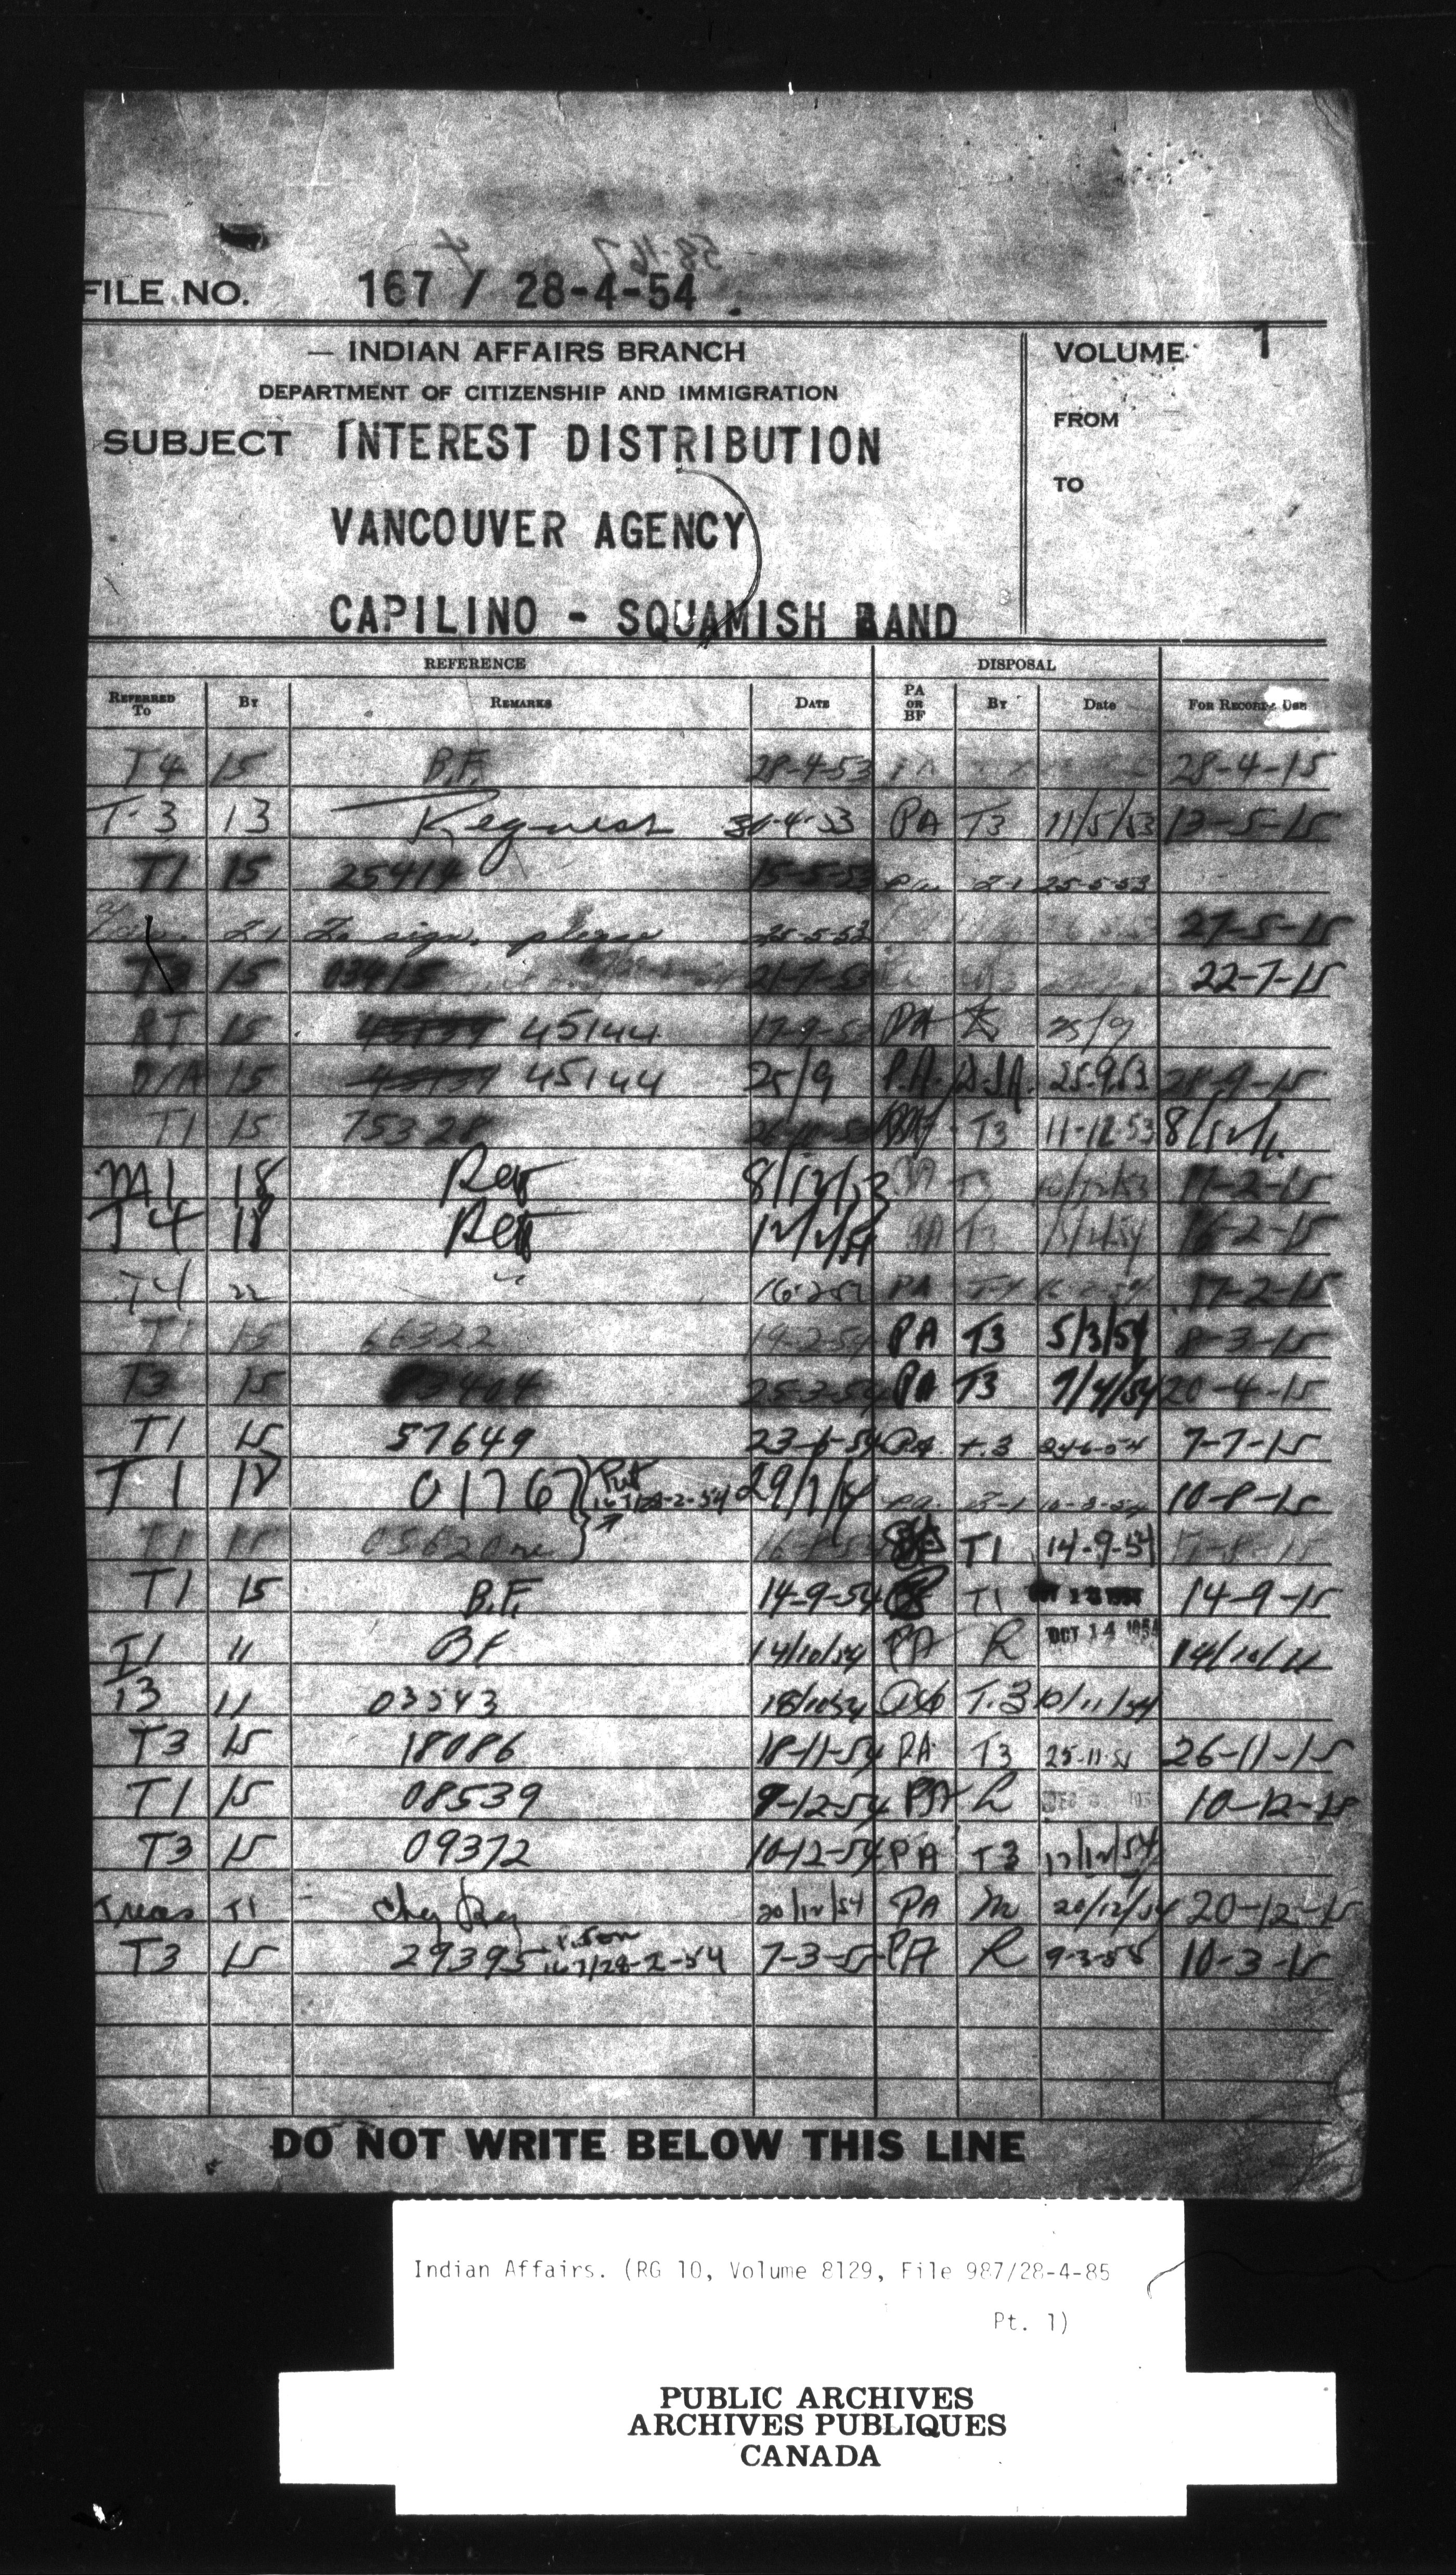 58-167
FILE NO. 167 / 28-4-54
INDIAN AFFAIRS BRANCH
DEPARTMENT OF CITIZENSHIP AND IMMIGRATION
SUBJECT INTEREST DISTRIBUTION
VANCOUVER AGENCY
CAPILINO - SQUAMISH BAND
VOLUME 1
FROM
TO
REFERENCE DISPOSAL
REFERRED TO BY REMARKS DATE PA OR BF BY Date FOR RECORDS USE
T4 15 B.F. 28-4-53 PA 28-4-15
T-3 13 Request 30-4-53 PA T3 11/5/53 13-5-15
T1 15 25414 15-5-53 25-5-53
To sign, please 25-5-53 27-5-15
T3 15 03415 21-7-53 22-7-15
RT 15 45144 17-9-53 PA 25/9
D/A 15 45144 25/9 P.A. 25.9.53 28-9-15
T1 15 75328 T3 11-12-53
M1 18 Req 8/12/53 11-2-15
T4 18 Req 12/2/54 PA T3 15/2/54 16-2-15
T4 22 " 16-2-54 PA T-4 17-2-15
T1 15 66322 19-2-54 PA T3 5/3/54 8-3-15
T3 15 83404 25-3-54 PA T3 7/4/54 20-4-15
T1 15 57649 23-6-54 PA T.3 24-6-54 7-7-15
T1 18 01767 Put 167/28-2-54 29/7/54 10-8-15
T1 05620 T1 14-9-54 17-8-15
T1 15 B.F. 14-9-54 T1 14-9-15
T1 11 BF 14/10/54 PA R OCT 14 1954 14/10/11
T3 11 03543 T.3 10/11/54
T3 15 18086 18-11-54 PA T3 25-11-54 26-11-15
T1 15 08539 9-12-54 PA R 10-12-15
T3 15 09372 10-12-54 PA T3 17/12/54
Treas T1 20/12/54 PA M 20/12/54 20-12-15
T3 15 29395 167/28-2-54 7-3-55 PA R 9-3-55 10-3-15
DO NOT WRITE BELOW THIS LINE
Indian Affairs. (RG 10, Volume 8129, File 987/28-4-85
Pt. 1)
PUBLIC ARCHIVES
ARCHIVES PUBLIQUES
CANADA